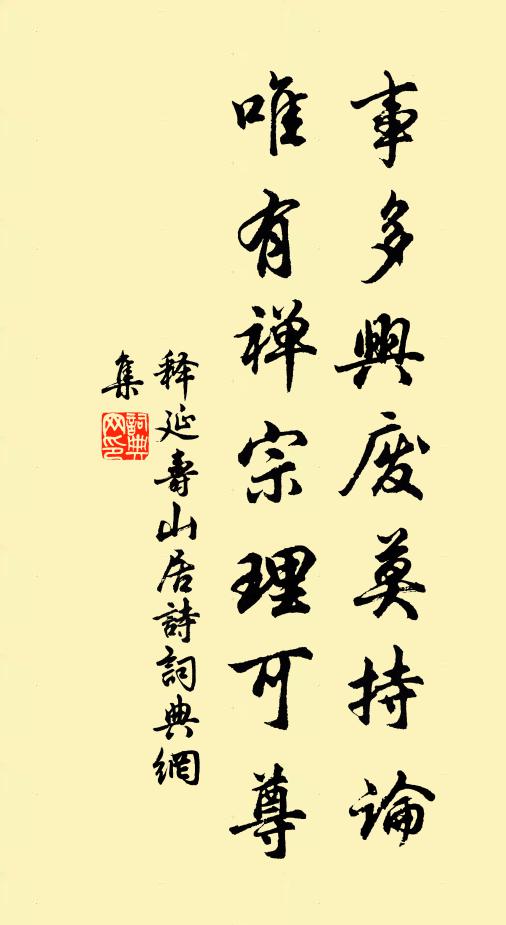 事多興废莫持論
唯有禅宗理可尊
释延壽山居詩詞典網
集
詞典网印